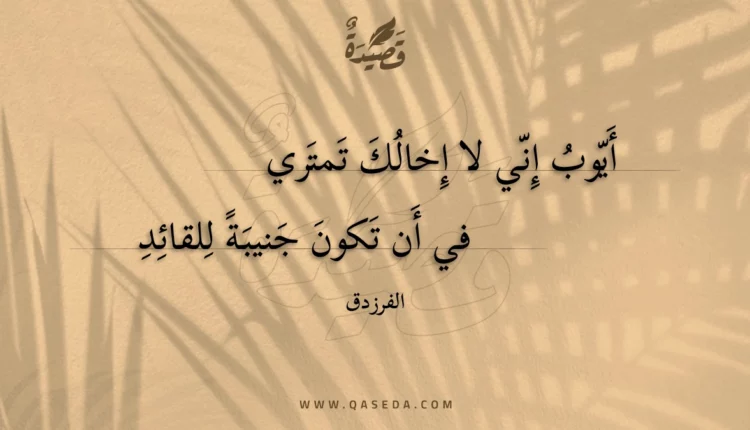 قَصِيْدَةٌ
أَيّوبُ إِنّي لا إِخالُكَ تَمتَري
في أَن تَكونَ جَنيبَةً لِلقائِدِ
الفرزدق
WWW.QASEDA.COM